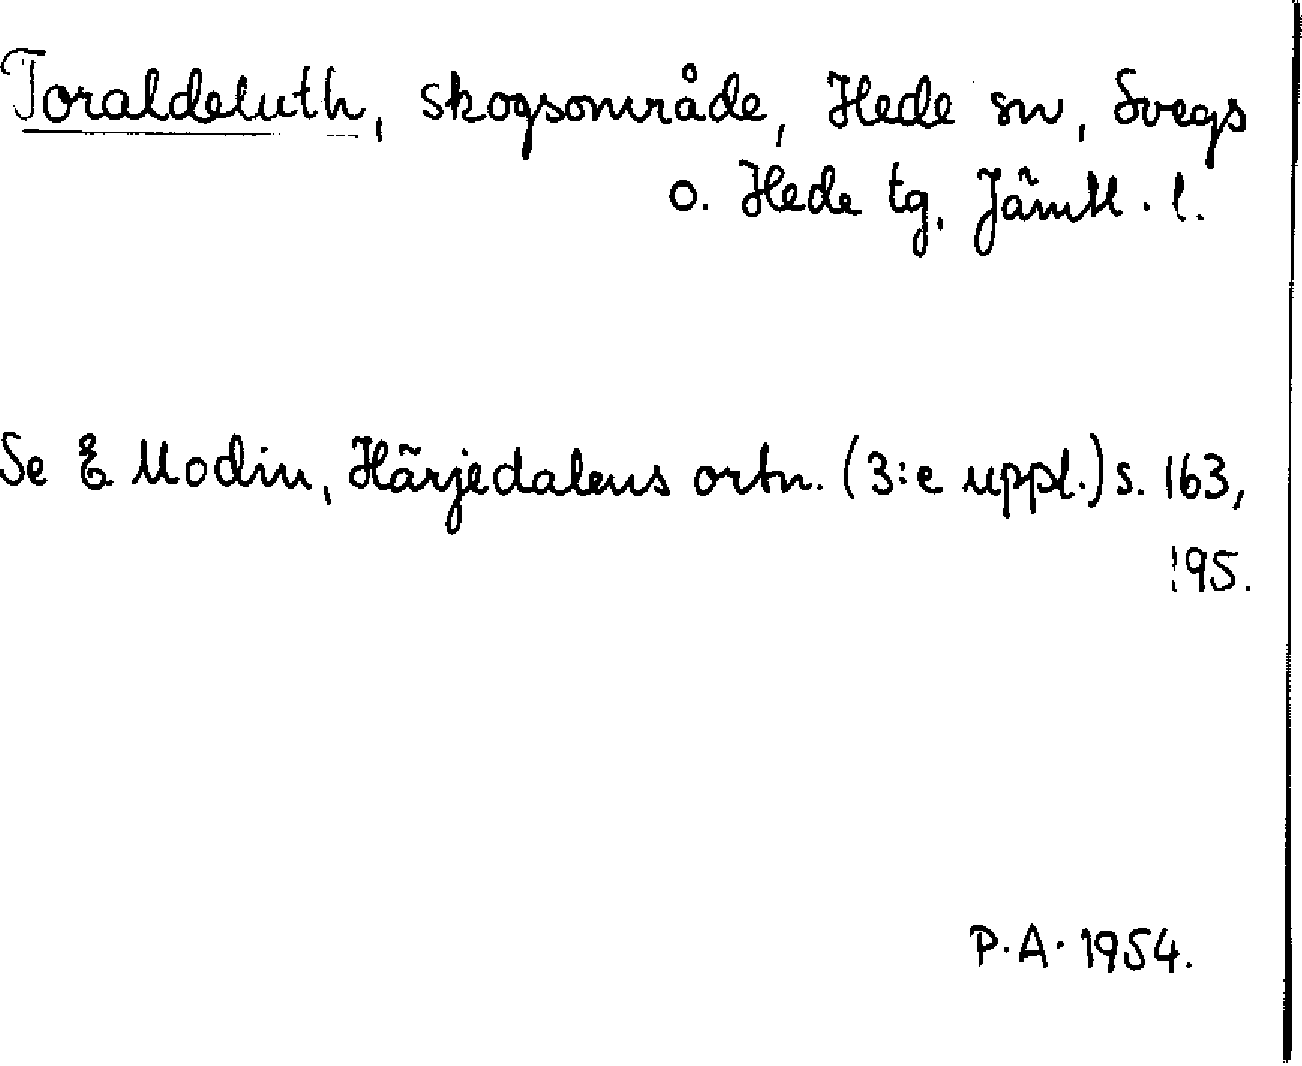 Toraldeluth, skogsområde, Hede sn, Svegs
o. Hede tg, Jämtl. l.
Se E Modin, Härjedalens ortn. (3:e uppl.) s. 163,
195.
P.A. 1954.